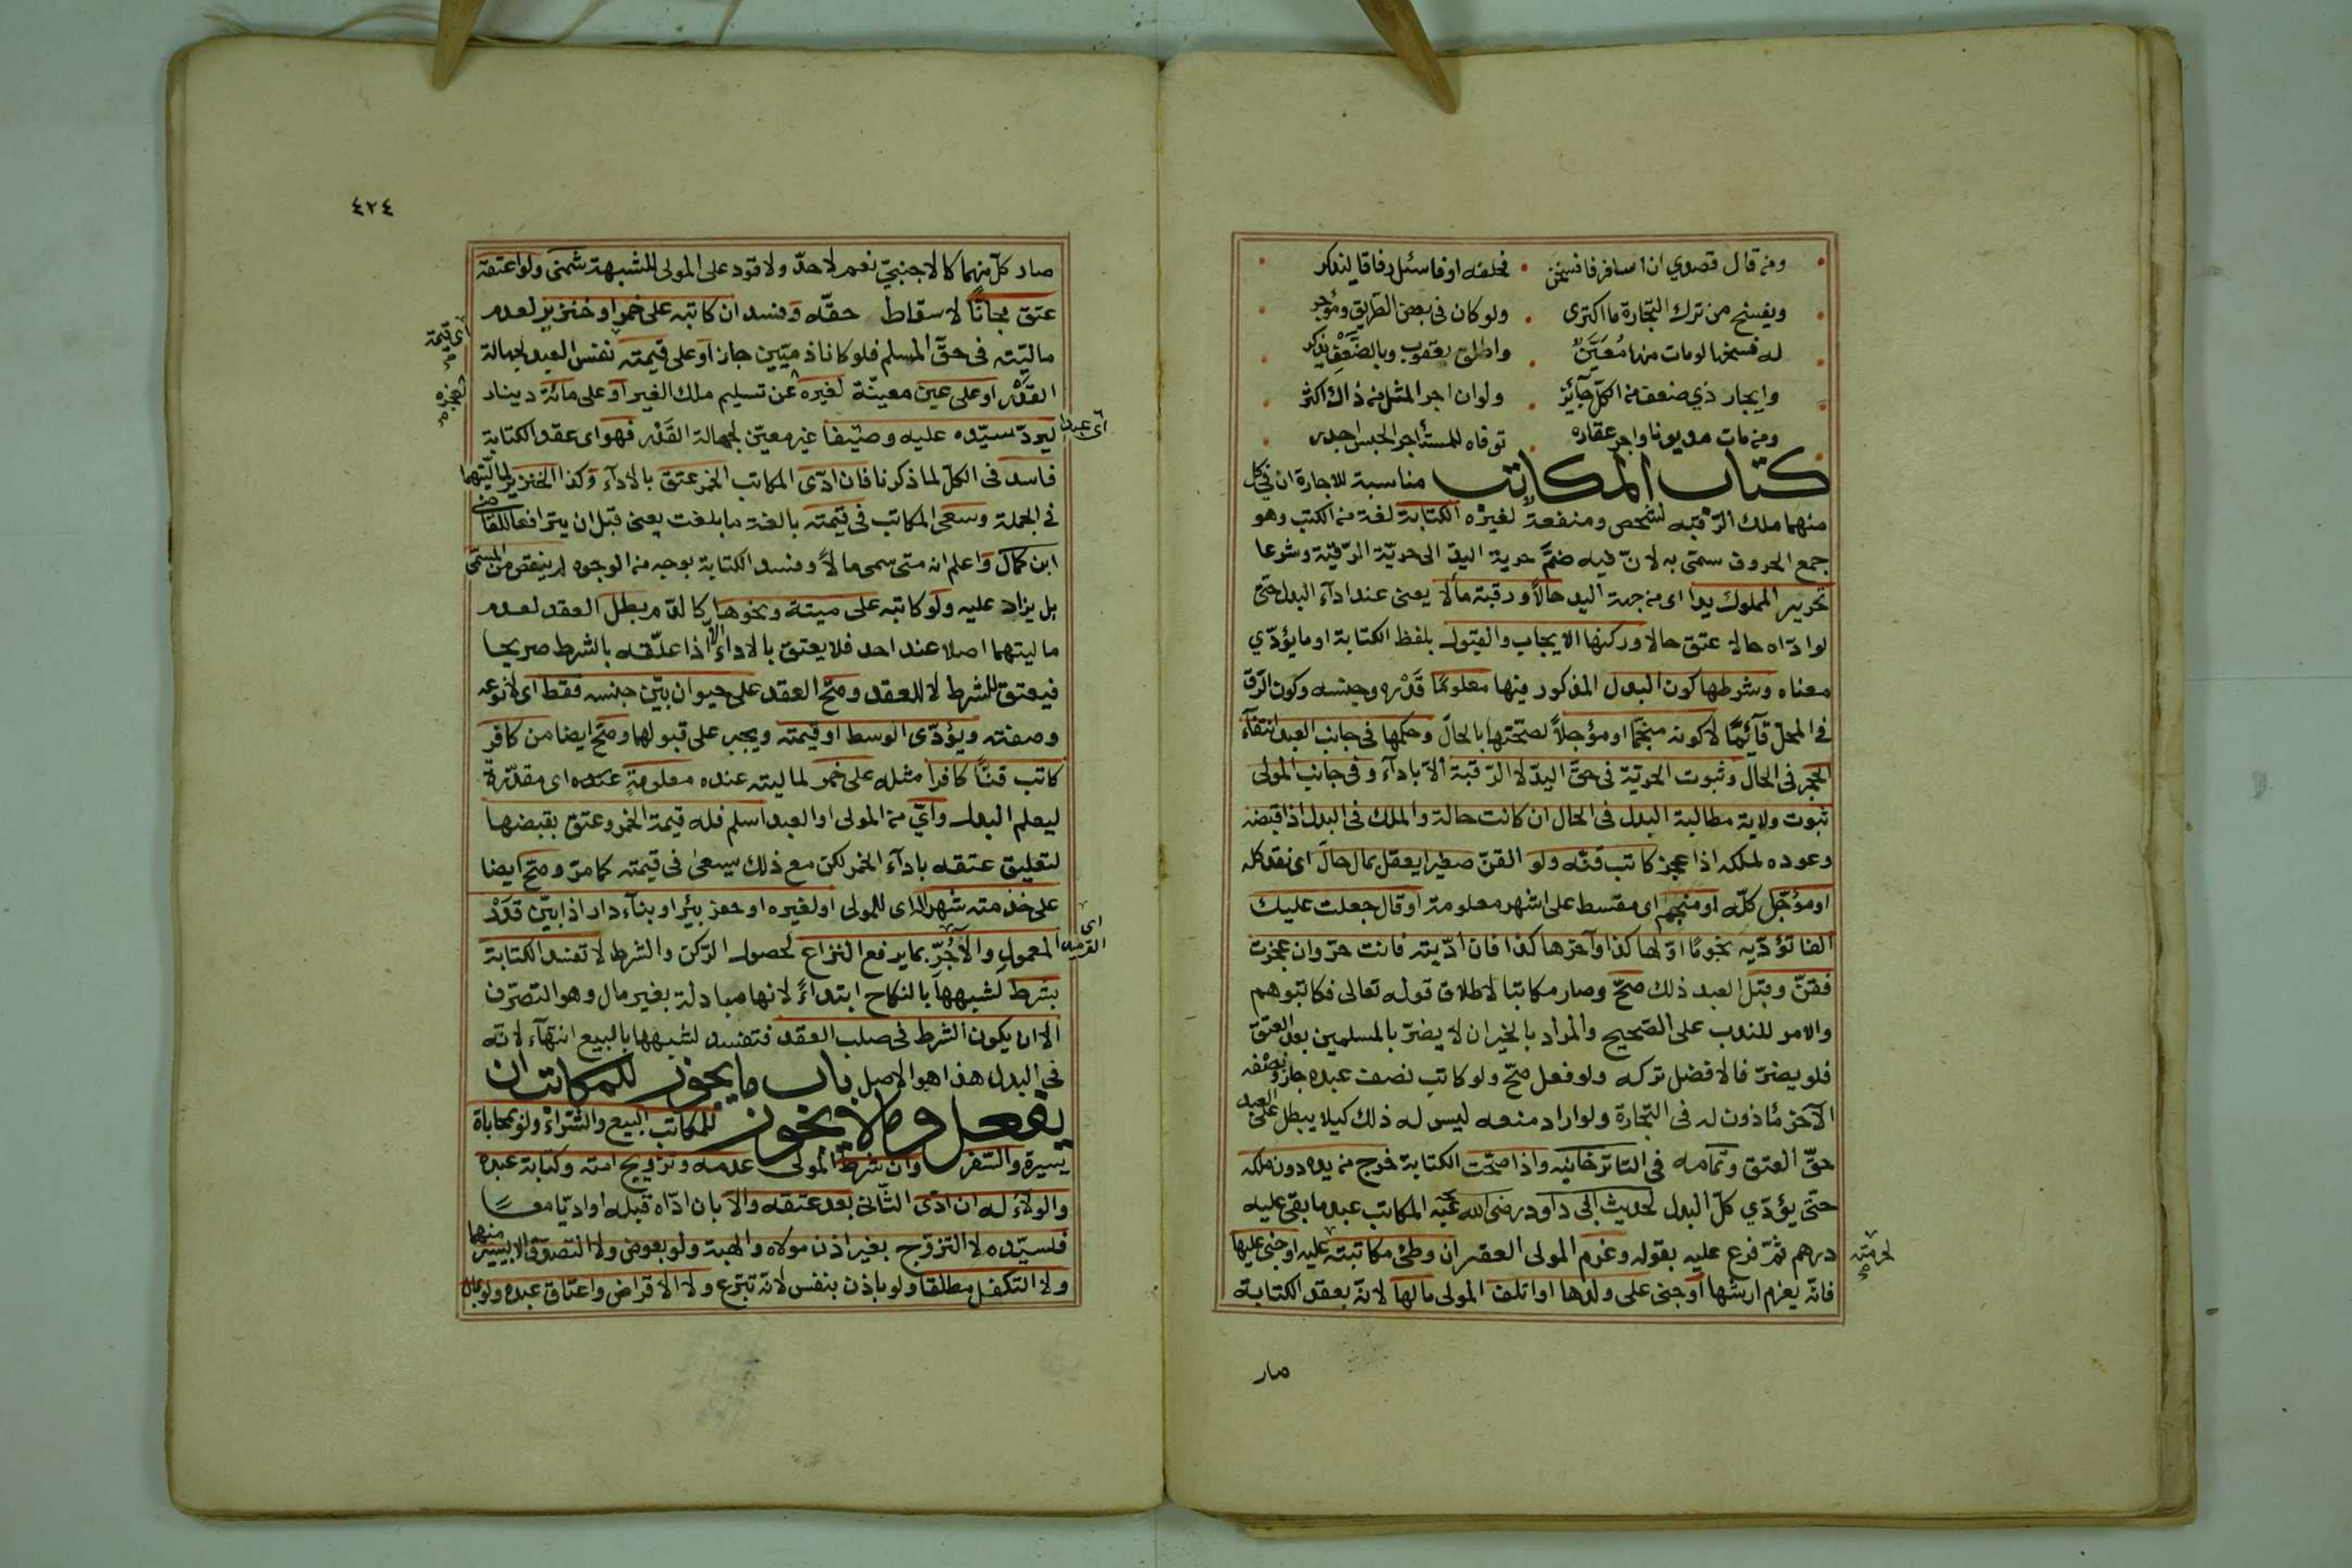 ومن قال قصدي ان اسافر فافسخن • فحلفه او فاسئل رفاقا ليذكر
ويفسخ من ترك التجارة ما اكترى • ولو كان في بعض الطريق ومؤجر
له فسخها لو مات منها مُعَيَّنٌ • واطلق يعقوب وبالضَّعْف يذكر
وايجار ذي ضعف من الكل جآئز • ولو ان اجر المثل من ذاك اكثر
ومن مات مديونا واجر عقاره • توفاه للمستأجر الحبس اجدر
كتاب المكاتب مناسبة للاجارة ان في كل
منهما ملك الرقبه لشخص ومنفعة لغيره الكتابة لغة من الكتب وهو
جمع الحروف سمّى به لانّ فيه ضمَّ حرية اليد الى حريّة الرّقبة وشرعا
تحرير المملوك يدا اى من جهة اليد حالاً ورقبة مآلا يعنى عند ادآء البدل حتى
لو ادّاه حالا عتق حالا وركنها الايجاب والقبول بلفظ الكتابة او ما يؤدّي
معناه وشرطها كون البدل المذكور فيها معلومًا قَدْره وجنسه وكون الرّق
في المحلّ قآئمًا لا كونه منجّمًا او مؤجلاً لصحّتها بالحالّ وحكمها فى جانب العبد انتفآء
الحجر فى الحال وثبوت الحريّة فى حقّ اليد لا الرّقبة الاّ بادآء وفى جانب المولى
ثبوت ولاية مطالبة البدل فى الحال ان كانت حالة والملك فى البدل اذا قبضه
وعوده لملكه اذا عجز كاتب قنّه ولو القنّ صغيرا يعقل بمال حالّ اى نقد كله
او مؤجّل كلّه او منجّم اى مقسط على اشهر معلومة او قال جعلت عليك
الفا تؤدّيه نجومًا اوّلها كذا وآخرها كذا فان ادّيته فانت حرّ وان عجزت
فقنّ وقبل العبد ذلك صحّ وصار مكاتبا لاطلاق قوله تعالى فكاتبوهم
والامر للندب على الصحيح والمراد بالخير ان لا يضرّ بالمسلمين بعد العتق
فلو يضرّ فالافضل تركه ولو فعل صحّ ولو كاتب نصف عبده جاز ونصْفه
الآخر مأذون له فى التجارة ولو اراد منعه ليس له ذلك كيلا يبطل على العبد
حقّ العتق وتمامه فى التاترخانيه واذا صحّت الكتابة خرج من يده دون ملكه
حتّى يؤدّي كلّ البدل لحديث ابى داود رضى الله عنه المكاتب عبد ما بقى عليه
درهم ثمّ فرع عليه بقوله وغرم المولى العقر ان وطئ مكاتبته عليه او جنى عليها
لحرمته
فانّه يغرم ارشها او جنى على ولدها او اتلف المولى مالها لانّه بعقد الكتابة
صار
٤٢٤
صار كلّ منهما كالاجنبيّ نعم لا حدّ ولا قود على المولى للشبهة شمنى ولو اعتقه
عتق مجانًا لاسقاط حقّه وفسد ان كاتبه على خمر او خنزير لعدم
ماليّته فى حقّ المسلم فلو كانا ذميّين جاز او على قيمته نفس العبد لجهالة
اى قيمة
القَدْر او على عين معينّة لغيره عن تسليم ملك الغير او على مائة دينار
لعجزه
ليردّ سيّده عليه وصيفا غير معيّن لجهالة القَدْر فهو اى عقد الكتابة
اى عبدا
فاسد فى الكلّ لما ذكرنا فان ادّى المكاتب الخمر عتق بالادآء وكذا الخنزير لماليّتهما
فى الجملة وسعى المكاتب فى قيمته بالغة ما بلغت يعنى قبل ان يترافعا للقاضى
ابن كمال واعلم انه متى سمى مالاً وفسد الكتابة بوجه من الوجوه لم ينقص من المسمّى
بل يزاد عليه ولو كاتبه على ميتة ونحوها كالدّم بطل العقد لعدم
ماليتهما اصلا عند احد فلا يعتق بالاداء الاّ اذا علّقه بالشرط صريحا
فيعتق للشرط لا للعقد وصحّ العقد على حيوان بيّن جنسه فقط اى لا نوعه
وصفته ويؤدّى الوسط او قيمته ويجبر على قبولها وصحّ ايضا من كافر
كاتب قنًّا كافرا مثله على خمر لماليته عنده معلومةٍ عنده اى مقدّرة
ليعلم البدل وايّ من المولى او العبد اسلم فله قيمة الخمر وعتق بقبضها
لتعليق عتقه بادآء الخمر لكن مع ذلك سيسعى فى قيمته كما مرّ وصحّ ايضا
على خدمته شهرا له اى للمولى او لغيره او حفر بئر او بنآء دار اذا بيّن قَدْرَ
المعمول والآجُرّ بما يرفع النزاع لحصول الرّكن والشرط لا تفسد الكتابة
بشرط لشبهها بالنكاح ابتداءً لانها مبادلة بغير مال وهو التصرّف
الا ان يكون الشرط فى صلب العقد فتفسد لشبهها بالبيع انتهآء لانّه
فى البدل هذا هو الاصل باب ما يجوز للمكاتب ان
يفعل وما لا يجوز للمكاتب البيع والشّرآء ولو بمحاباة
يسيرة والسّفر وان شرط المولى عدمه وتزويج امته وكتابة عبده
والولآء له ان ادّى الثّانى بعد عتقه والّا بان ادّاه قبله او اديّا معًا
فلسيّده لا التزوّج بغير اذن مولاه والهبة ولو بعوض ولا التصدّق الا بيسير منهما
ولا التكفل مطلقا ولو باذن بنفس لانّه تبرّع ولا الاقراض واعتاق عبده ولو بمال